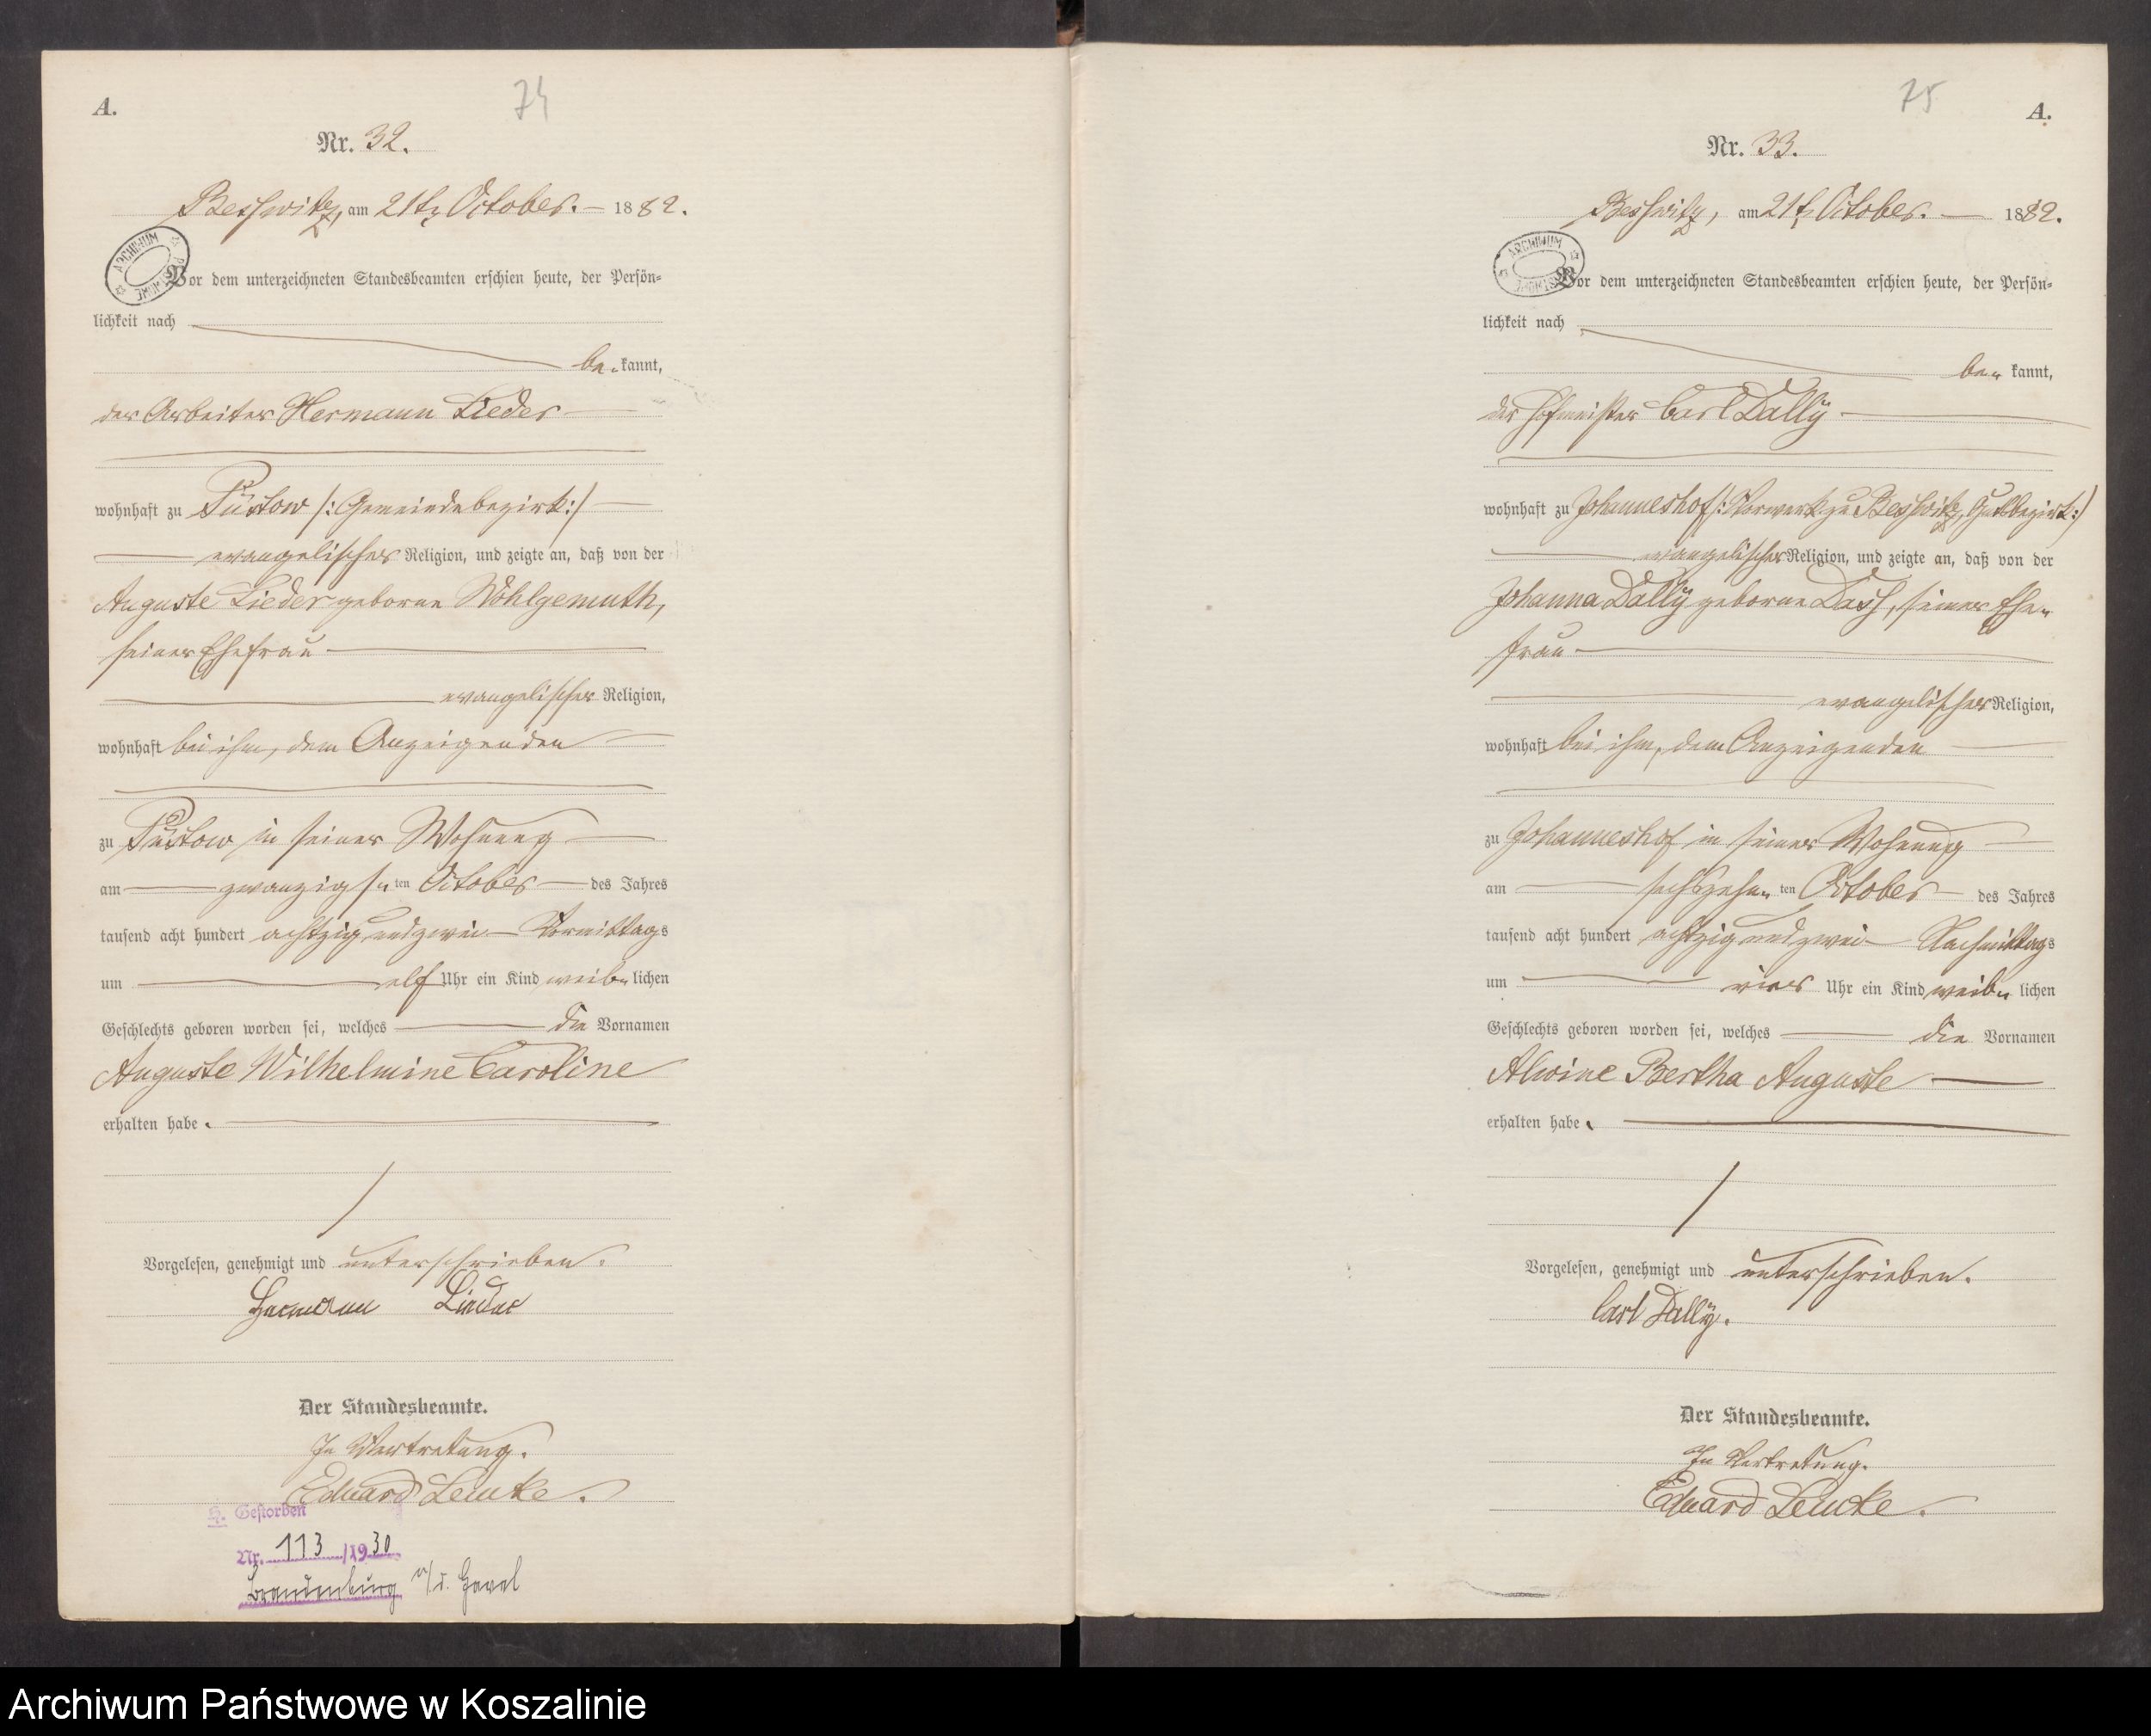 74
A.
Nr. 32.
Beßwitz, am 21ten October. 1882.
ARCHIWUM
Vor dem unterzeichneten Standesbeamten erschien heute, der Persön=
lichkeit nach
be= kannt,
der Arbeiter Hermann Lieder
wohnhaft zu Püstow /: Gemeindebezirk :/
evangelischer Religion, und zeigte an, daß von der
Auguste Lieder geborne Wohlgemuth,
seiner Ehefrau
evangelischer Religion,
wohnhaft bei ihm, dem Anzeigenden
zu Püstow in seiner Wohnung
am zwanzigsten October des Jahres
tausend acht hundert achtzig und zwei Vormittags
um elf Uhr ein Kind weib= lichen
Geschlechts geboren worden sei, welches die Vornamen
Auguste Wilhelmine Caroline
erhalten habe.
Vorgelesen, genehmigt und unterschrieben.
Hermann Lieder
Der Standesbeamte.
In Vertretung.
Eduard Lemke.
H. Gestorben
Nr. 113 /1930
Brandenburg a/d. Havel
75
A.
Nr. 33.
Beßwitz, am 21ten October. 1882.
ARCHIWUM
Vor dem unterzeichneten Standesbeamten erschien heute, der Persön=
lichkeit nach
be= kannt,
der Hofmeister Carl Dally
wohnhaft zu Johanneshof /: Vorwerk zu Beßwitz, Gutsbezirk :/
evangelischer Religion, und zeigte an, daß von der
Johanna Dally geborne Dass, seiner Ehe=
frau
evangelischer Religion,
wohnhaft bei ihm, dem Anzeigenden
zu Johanneshof in seiner Wohnung
am sechszehnten October des Jahres
tausend acht hundert achtzig und zwei Nachmittags
um vier Uhr ein Kind weib= lichen
Geschlechts geboren worden sei, welches die Vornamen
Alwine Bertha Auguste
erhalten habe.
Vorgelesen, genehmigt und unterschrieben.
Carl Dally.
Der Standesbeamte.
In Vertretung.
Eduard Lemke.
Archiwum Państwowe w Koszalinie